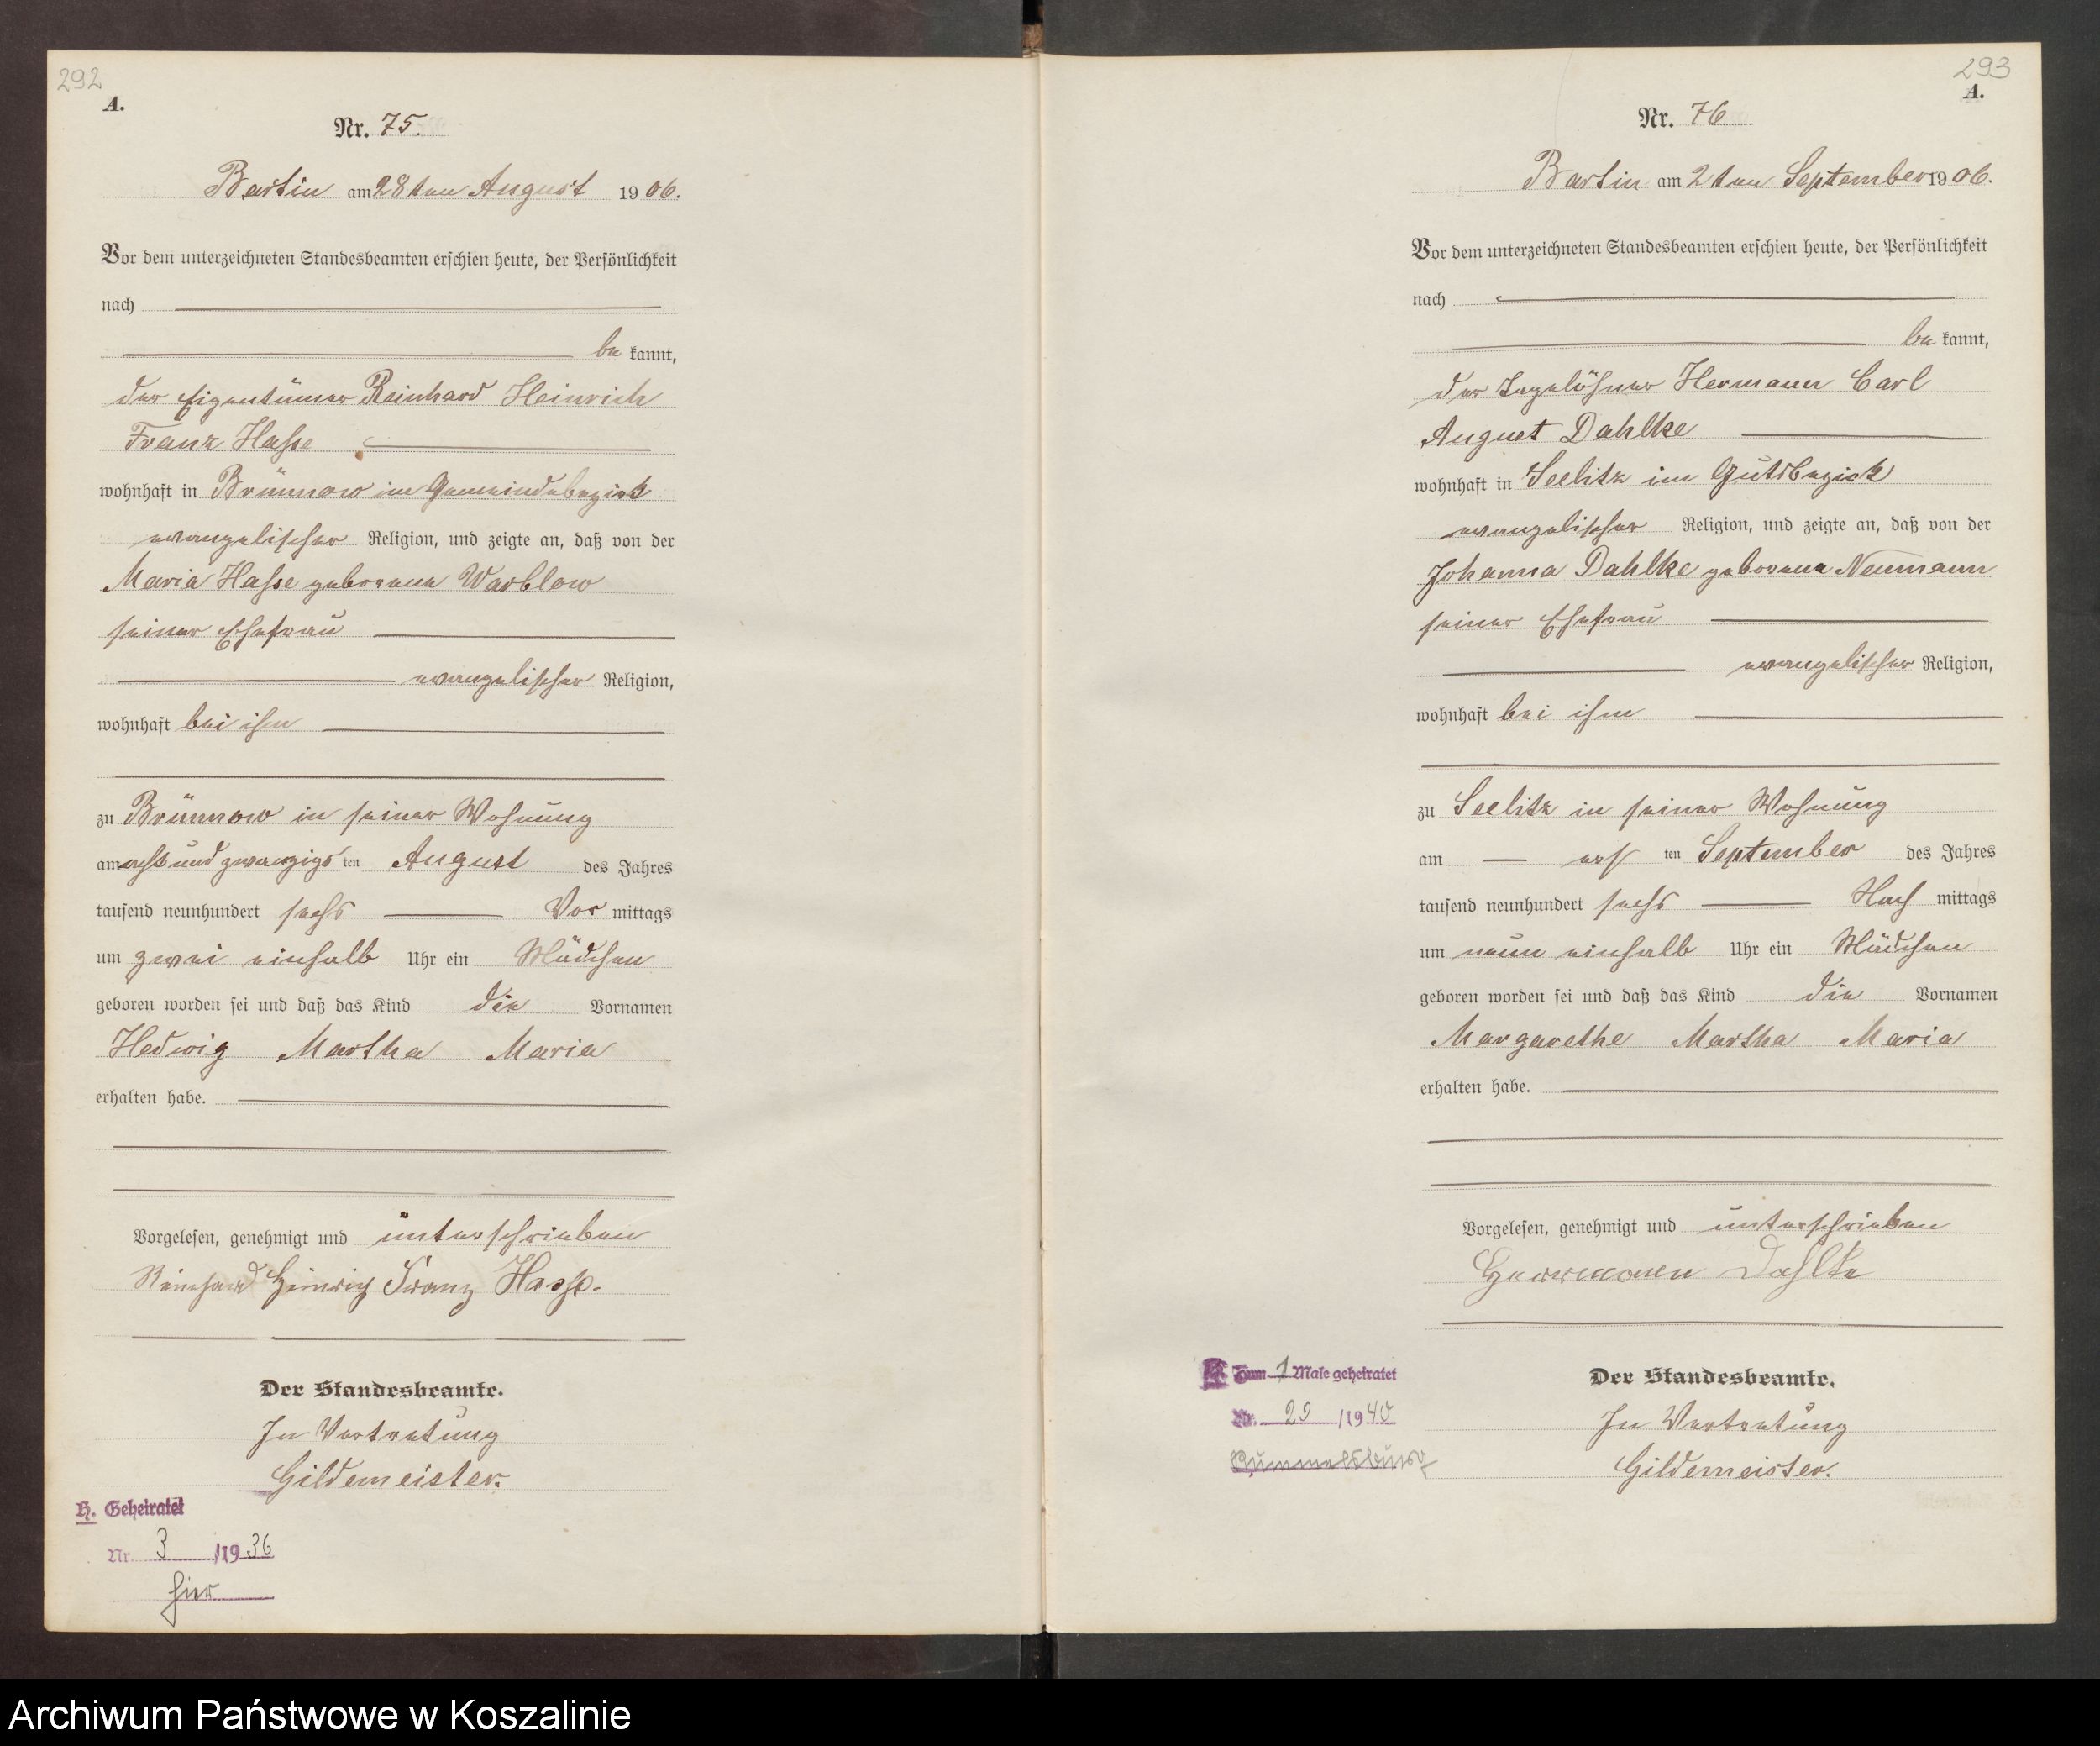 292
A.
Nr. 75.
Bartin am 28ten August 1906.
Vor dem unterzeichneten Standesbeamten erschien heute, der Persönlichkeit
nach
be kannt,
der Eigentümer Reinhard Heinrich
Franz Hasse
wohnhaft in Brünnow im Gemeindebezirk
evangelischer Religion, und zeigte an, daß von der
Maria Hasse geborene Warblow
seiner Ehefrau
evangelischer Religion,
wohnhaft bei ihm
zu Brünnow in seiner Wohnung
am acht und zwanzigs ten August des Jahres
tausend neunhundert sechs Vor mittags
um zwei einhalb Uhr ein Mädchen
geboren worden sei und daß das Kind die Vornamen
Hedwig Martha Maria
erhalten habe.
Vorgelesen, genehmigt und unterschrieben
Reinhard Heinrich Franz Hasse.
Der Standesbeamte.
In Vertretung
Gildemeister.
H. Geheiratet
Nr. 3 /1936
hier
293
A.
Nr. 76
Bartin am 2ten September 1906.
Vor dem unterzeichneten Standesbeamten erschien heute, der Persönlichkeit
nach
be kannt,
der Tagelöhner Hermann Carl
August Dahlke
wohnhaft in Seelitz im Gutsbezirk
evangelischer Religion, und zeigte an, daß von der
Johanna Dahlke geborene Neumann
seiner Ehefrau
evangelischer Religion,
wohnhaft bei ihm
zu Seelitz in seiner Wohnung
am ers ten September des Jahres
tausend neunhundert sechs Nach mittags
um neun einhalb Uhr ein Mädchen
geboren worden sei und daß das Kind die Vornamen
Margarethe Martha Maria
erhalten habe.
Vorgelesen, genehmigt und unterschrieben
Herrmann Dahlke
Zum 1 Male geheiratet
Nr. 29 /1940
Rummelsburg
Der Standesbeamte.
In Vertretung
Gildemeister.
Archiwum Państwowe w Koszalinie